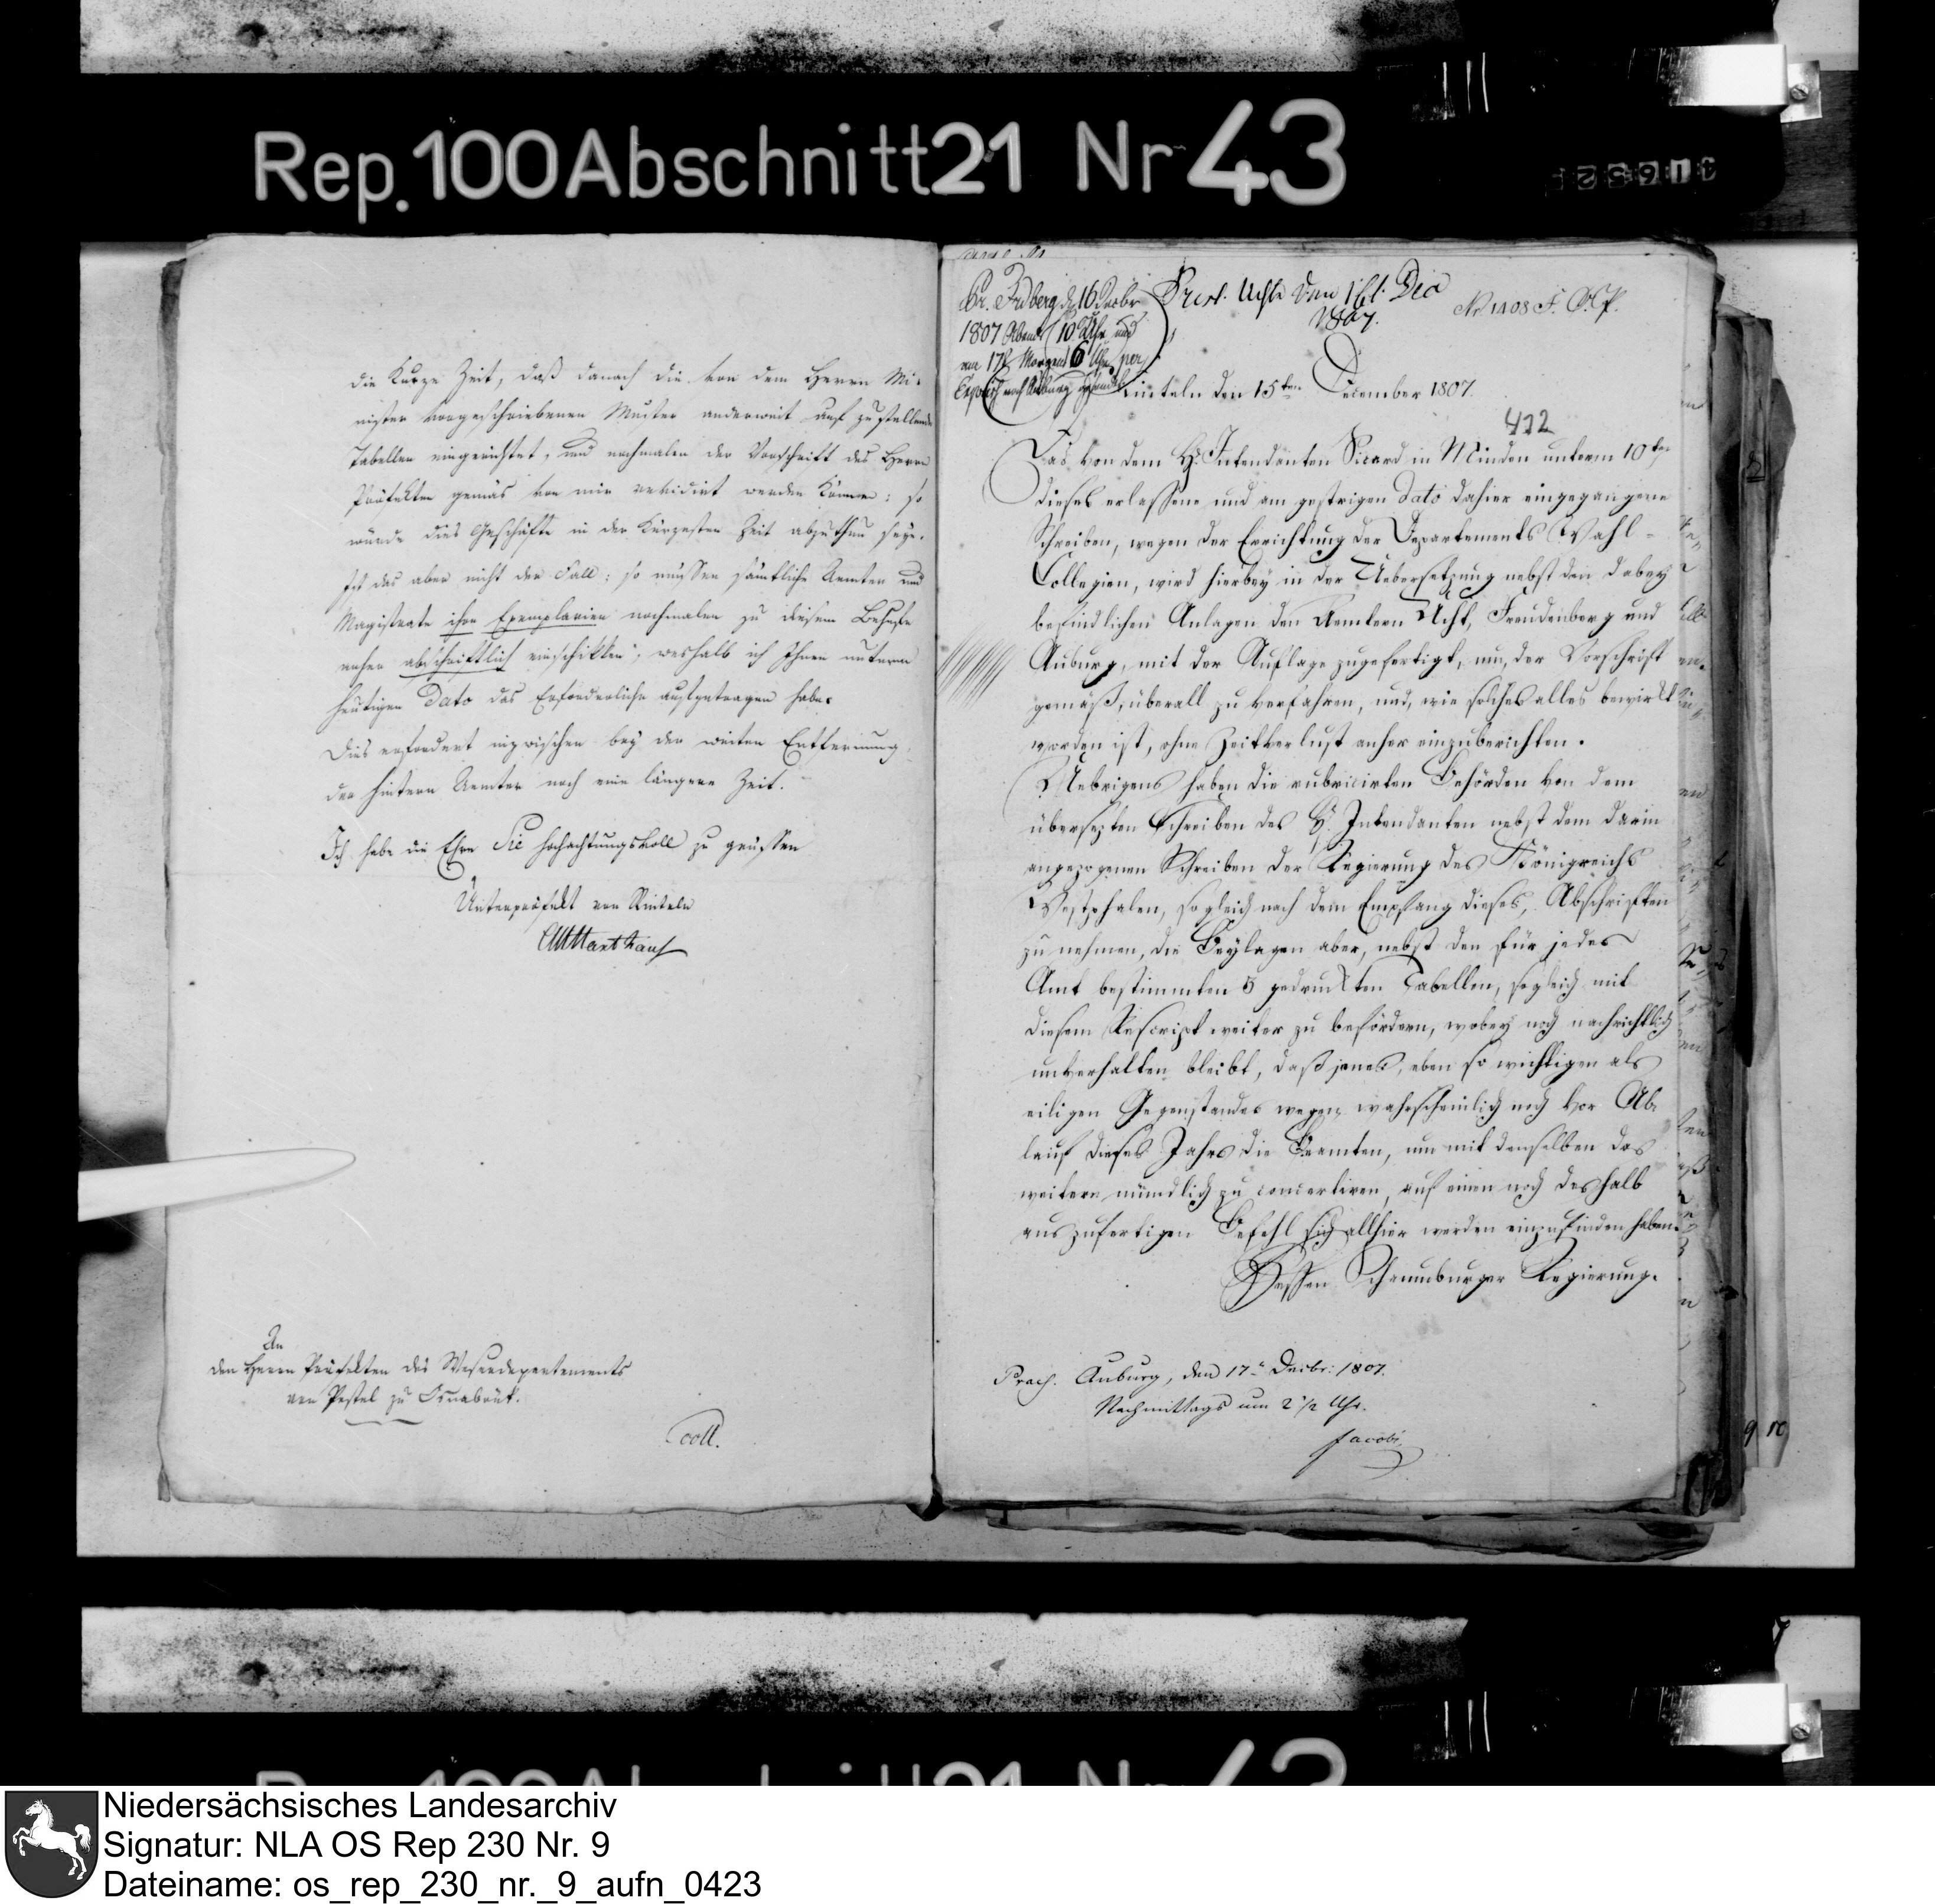 Rep. 100 Abschnitt 21 Nr 43
die kurze Zeit, daß danach die von dem Herrn Mi-
nister vorgeschriebenen Muster anderweit auf zustellende
Tabellen eingerichtet, und nochmalen der Vorschrift des Herrn
Präfekten gemäs von mir revidirt werden können; so
würde dies Geschäfte in der kürzesten Zeit abzuthun seyn.
Ist das aber nicht der Fall; so müssen sämtliche Aemter und
Magistrate ihre Exemplarien nochmalen zu diesem Behufe
anher abschriftlich einschikken, weshalb ich Ihnen unterm
heutigen Dato das Erforderliche aufgetragen habe.
Dies erfordert inzwischen bey der weiten Entfernung
der hintern Aemter noch eine längere Zeit.
Ich habe die Ehre Sie hochachtungsvoll zu grüssen
Unterpräfekt von Rinteln
An
den Herrn Präfekten des Weserdepartements
von Pestel zu Osnabrük.
coll.
den 16 Decbr
1807 Abends 10 Uhr und
am 17t Morgens 6 Uhr per
Praes. Uchte den 16t. Dec
1807.
Rinteln den 15ten December 1807.
422
Das von dem H. Intendanten Sicard in Minden unterm 10ten
dieses erlassene und am gestrigen dato dahier eingegangene
Schreiben, wegen der Errichtung der Departements Wahl-
Collegien, wird hierbey in der Uebersetzung nebst den dabey
befindlichen Anlagen den Aemtern Ucht, Freudenberg und
Auburg, mit der Auflage zugefertigt, um, der Vorschrift
gemäß, überall zu verfahren, und, wie solches alles bewirkt
worden ist, ohne Zeitverlust anher einzuberichten.
Uebrigens haben die rubricirten Behörden von dem
übersezten Schreiben des H. Intendanten nebst dem darin
angezogenen Schreiben der Regierung des Königreichs
Westphalen, sogleich nach dem Empfang dieses, Abschriften
zu nehmen, die Beylagen aber, nebst den für jedes
Amt bestimmten 5 gedruckten Tabellen, sogleich mit
diesem Rescript weiter zu befördern, wobey noch nachrichtlich
unverhalten bleibt, daß jenes, eben so wichtigen als
eiligen Gegenstandes wegen wahrscheinlich noch vor Ab-
lauf dieses Jahrs die Beamten, um mit denselben das
weitere mündlich zu concertiren, auf einen noch deshalb
auszufertigen Befehl sich allhier werden einzufinden haben.
Hessen Schaumburger Regierung.
Praes. Auburg, den 17t. Decbr: 1807.
Nachmittags um 2 1/2 Uhr.
Jacobi
9 10
Niedersächsisches Landesarchiv
Signatur: NLA OS Rep 230 Nr. 9
Dateiname: os_rep_230_nr._9_aufn_0423